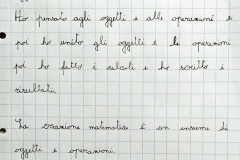 Ho pensato agli oggetti e alle operazioni e
poi ho unito gli oggetti e le operazioni
poi ho fatto i calcoli e ho scritto i
risultati.
La creazione matematica è un insieme di
oggetti e operazioni.